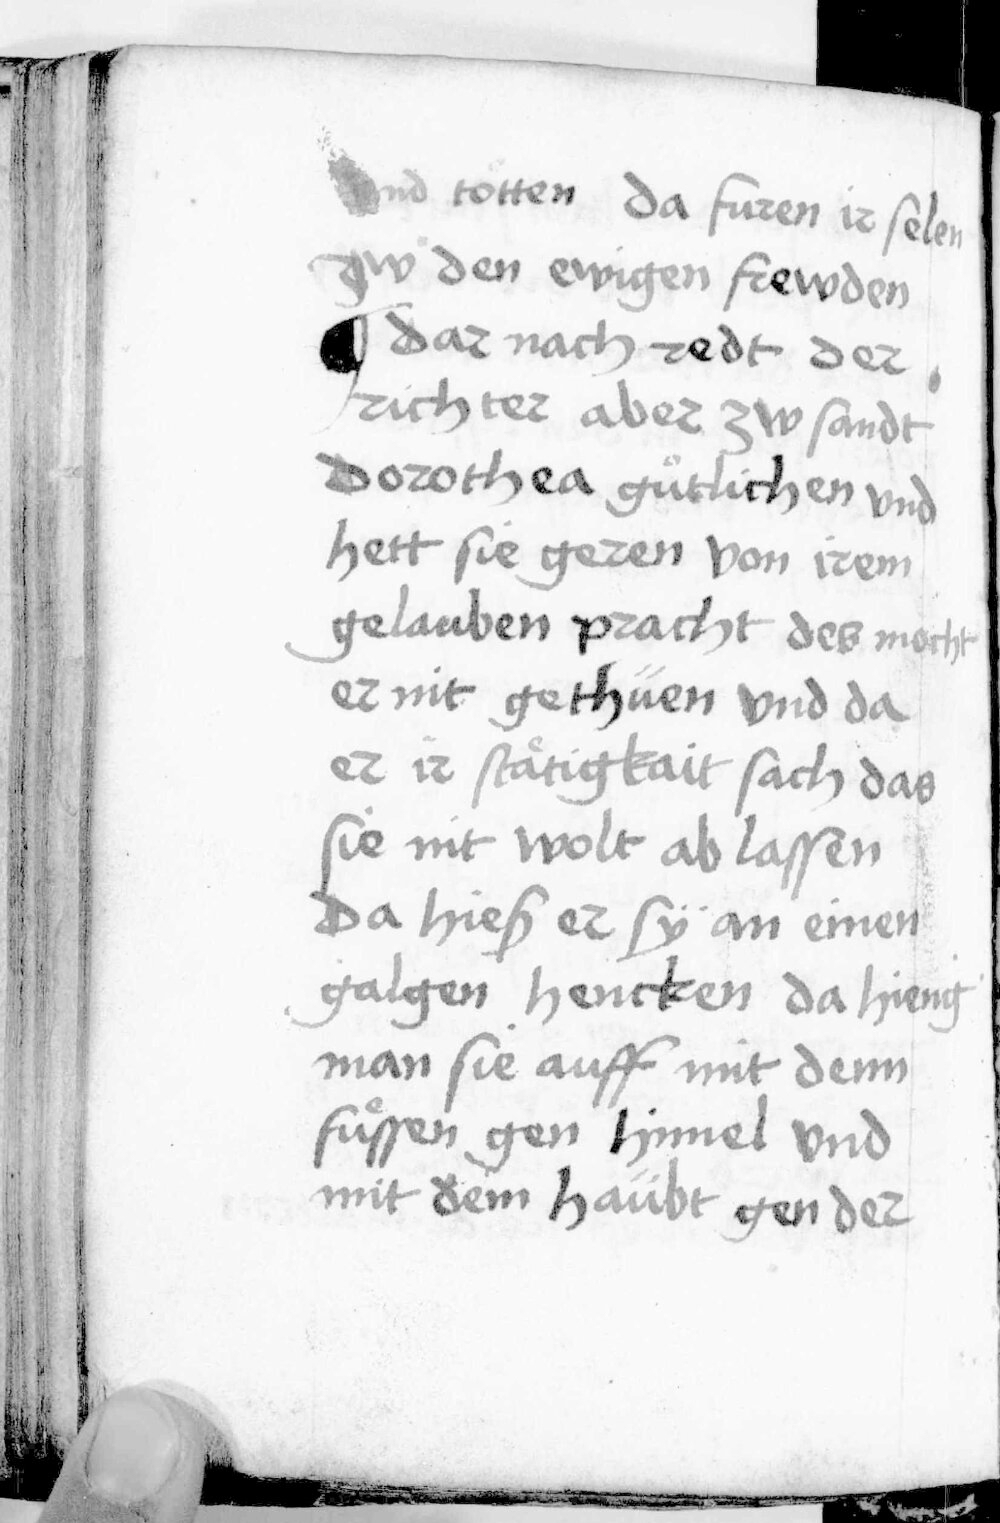 vnd tötten da furen ir selen
zw den ewigen frewden
¶ dar nach redt der
richter aber zw sandt
dorothea gůtlichen vnd
hett sie geren von irem
gelauben pracht des mocht
er nit gethüen vnd da
er ir ståtigkait sach das
sie nit wolt ab lassen
da hieß er sÿ an einen
galgen hencken da hieng
man sie auff mit denn
fůssen gen himel vnd
mit dem haübt gen der